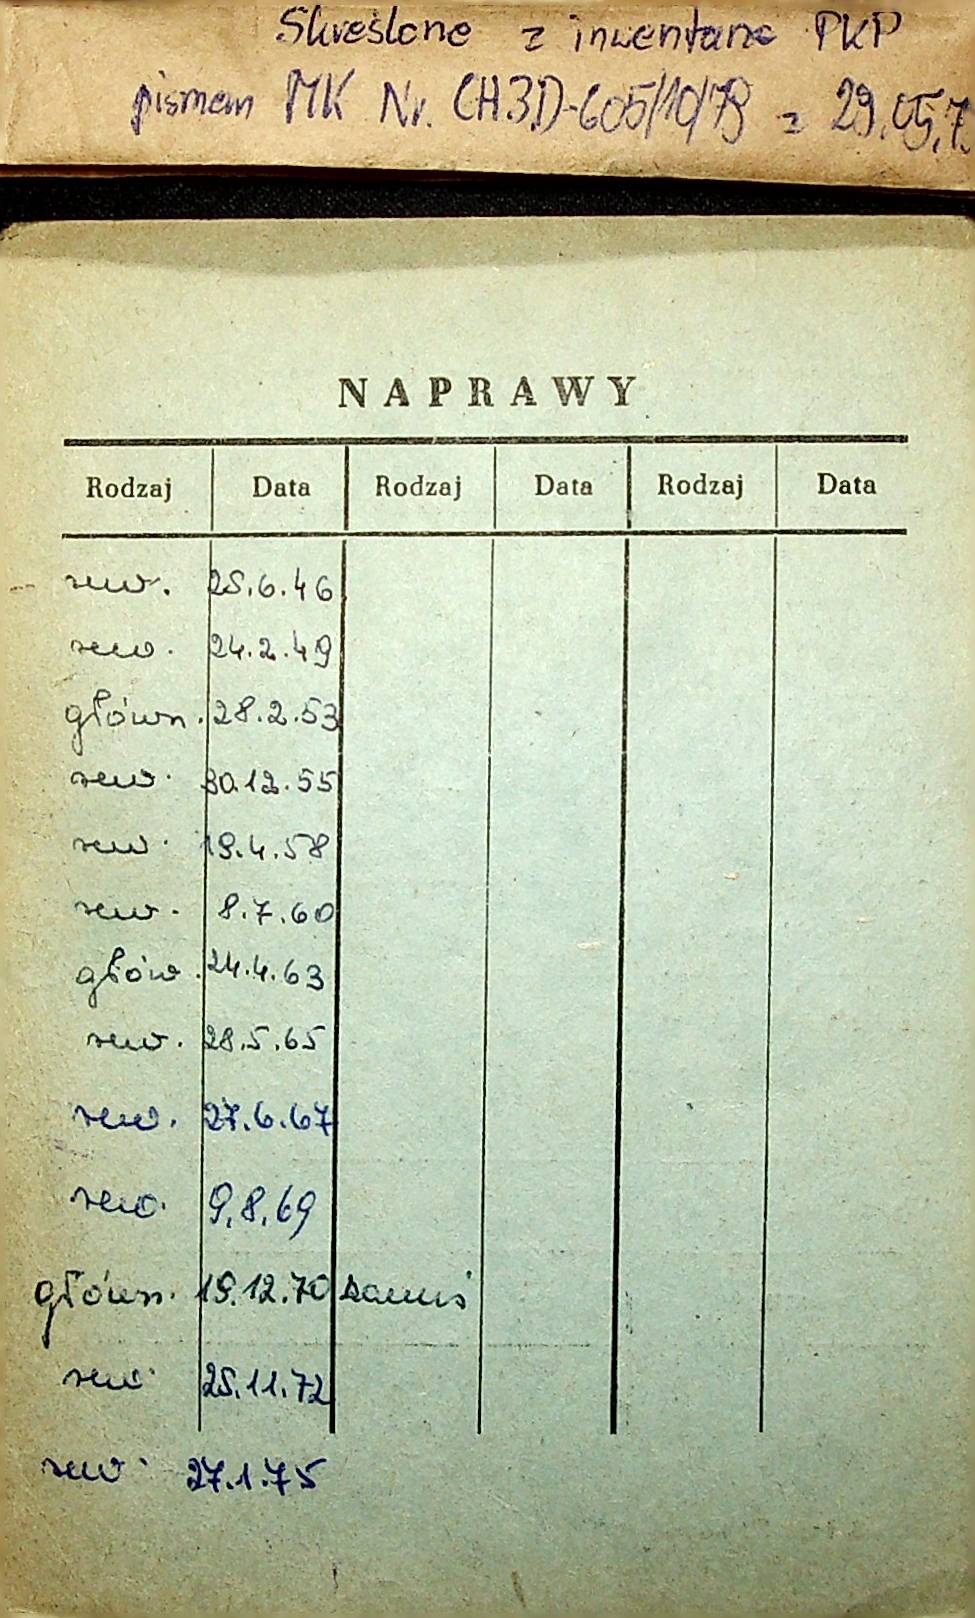 Skreślone z inwentarza PKP
pismem MK Nr. CH3D-605/10/79 z 29.05.7
NAPRAWY
Rodzaj Data Rodzaj Data Rodzaj Data
rew. 25.6.46
rew. 24.2.49
główn. 28.2.53
rew. 30.12.55
rew. 19.4.58
rew. 8.7.60
głów. 24.4.63
rew. 28.5.65
rew. 27.6.67
rew. 9.8.69
główn. 19.12.70
rew. 25.11.72
rew. 27.1.75